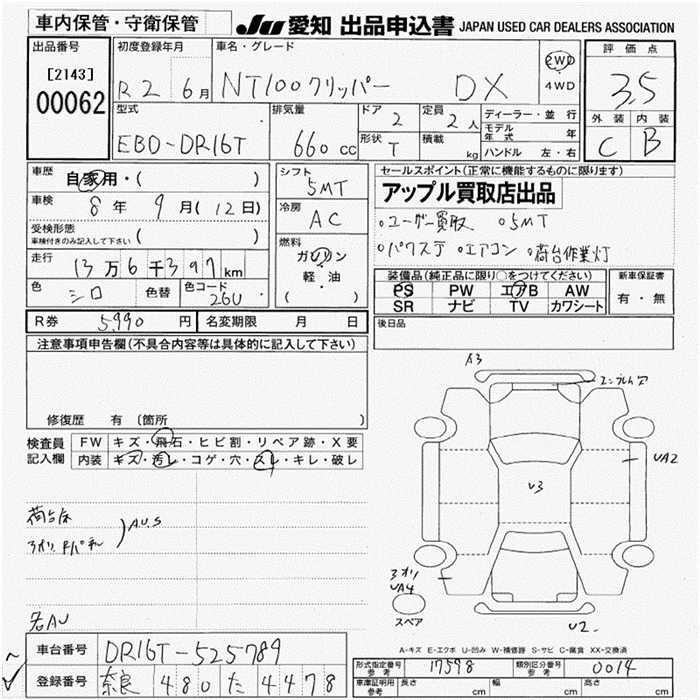 車内保管・守衛保管
JU 愛知 出品申込書 JAPAN USED CAR DEALERS ASSOCIATION
出品番号
[2143]
00062
初度登録年月
R2 6月
車名・グレード
NT100クリッパー DX
2WD
4WD
評価点
3.5
外装 内装
C B
型式
EBD-DR16T
排気量
660 cc
ドア 2
形状 T
定員 2人
積載 kg
ディーラー・並行
モデル年式 年
ハンドル 左・右
車歴 自家用・( )
車検 8年 9月(12日)
受検形態
車検付きのみ記入して下さい ( )
走行 13万6千397km
色 シロ 色替 色コード 26U
シフト
5MT
冷房
AC
燃料
ガソリン
軽・油
( )
セールスポイント(正常に機能するものに限ります)
アップル買取店出品
○ユーザー買取 ○5MT
○パワステ ○エアコン ○荷台作業灯
装備品(純正品に限り○をつけてください)
PS PW エアB AW
SR ナビ TV カワシート
新車保証書
有・無
R券 5,990円 名変期限 月 日
後日品
注意事項申告欄(不具合内容等は具体的に記入して下さい)
修復歴 有 〔箇所 〕
検査員記入欄
FW キズ・飛石・ヒビ割・リペア跡・X要
内装 キズ・汚レ・コゲ・穴・スレ・キレ・破レ
荷台床
アオリ
AU.S
各AU
A3
エンブレム穴
UA2
U3
アオリ
UA4
スペア
U2
A-キズ E-エクボ U-凹み W-補修跡 S-サビ C-腐食 XX-交換済
車台番号 DR16T-525789
登録番号 奈良 480 た 4478
形式指定番号 参考 17598
類別区分番号 参考 0014
車庫証明用 参考 長さ cm 幅 cm 高さ cm